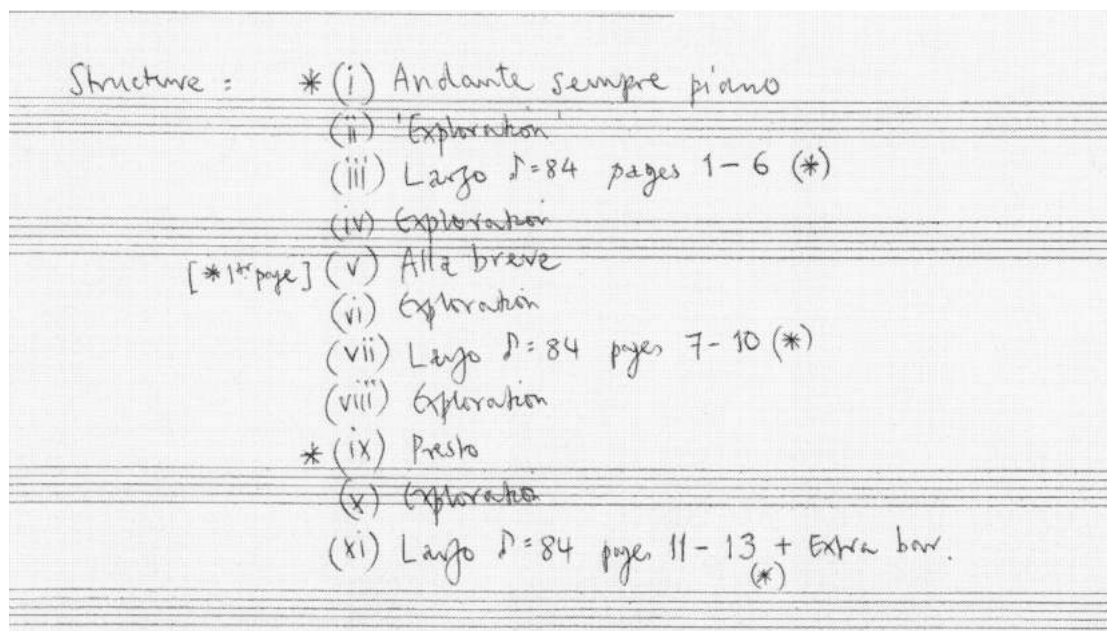 Structure : * (i) Andante sempre piano
(ii) 'Exploration'
(iii) Largo ♪=84 pages 1-6 (*)
(iv) Exploration
[* 1st page] (v) Alla breve
(vi) Exploration
(vii) Largo ♪=84 pages 7-10 (*)
(viii) Exploration
* (ix) Presto
(x) Exploration
(xi) Largo ♪=84 pages 11-13 + Extra bar.
(*)